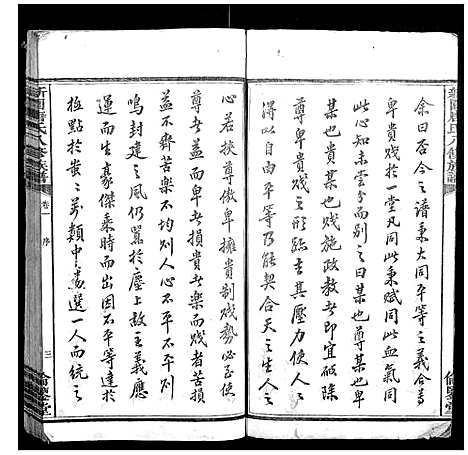 余曰否今之譜秉大同平等之義合尊
卑貴賤於一堂凡同此秉賦同此血氣同
此心知未嘗分而別之曰某也尊某也
某也貴某也賤施政教者即宜破除
尊卑貴賤之形跡去其壓力俾
得以自由平等乃能契合天之生人之
心若挾尊傲卑擁貴制賤勢必至使
尊者益而卑者損貴者樂而賤者苦損
益不齊苦樂不均則人心不平不平則
鳴封建之風仍囂於塵上故主義應
運而生豪傑乘時而出因不平等達於
極點於蚩蚩萬類中選一人而統之
卷一 序
三
倫鑒堂